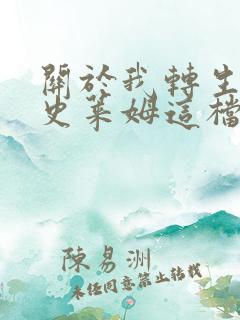 關於我轉生
史萊姆這檔
陳易洲
未經同意禁止轉載